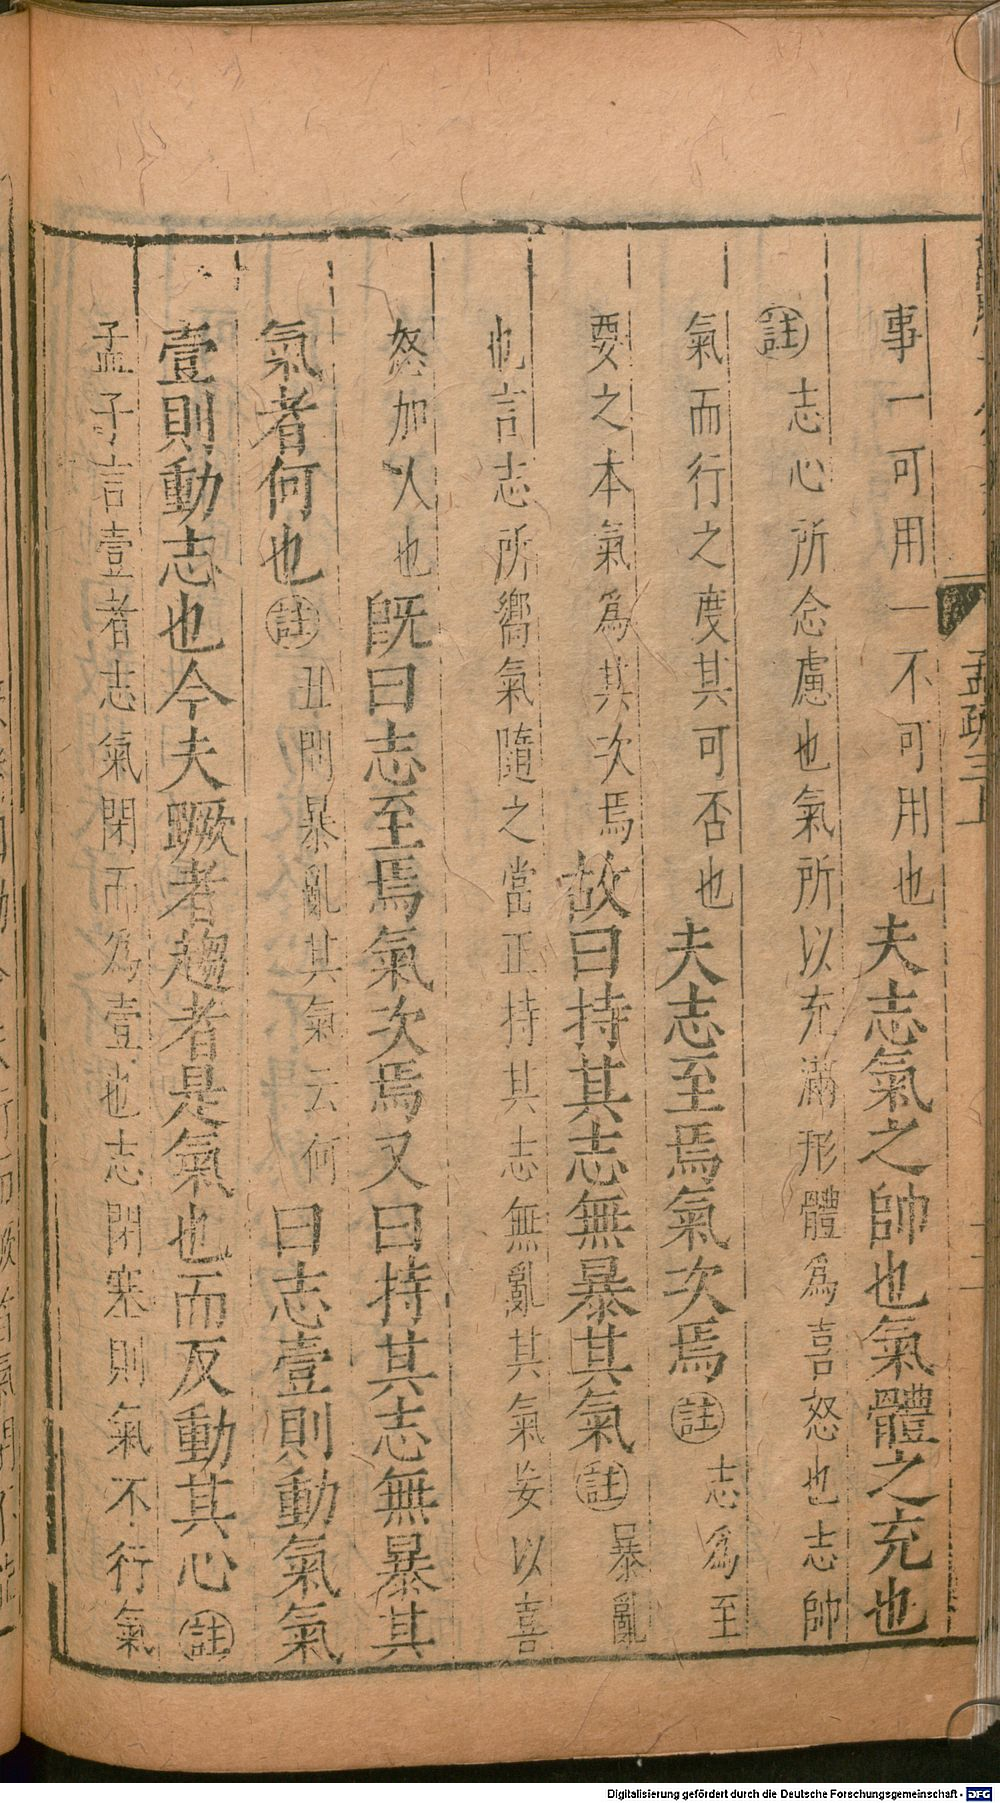 事一可用一不可用也夫志氣之帥也氣體之充也
註志心所念慮也氣所以充滿形體爲喜怒也志帥
氣而行之度其可否也夫志至焉氣次焉註志爲至
要之本氣爲其次焉故曰持其志無暴其氣註暴亂
也言志所嚮氣隨之當正持其志無亂其氣妄以喜
怒加人也旣曰志至焉氣次焉又曰持其志無暴其
氣者何也註丑問暴亂其氣云何曰志壹則動氣氣
壹則動志也今夫蹶者趨者是氣也而反動其心註
孟子言壹者志氣閉而爲壹也志閉塞則氣不行氣
孟疏三上
Digitalisierung gefördert durch die Deutsche Forschungsgemeinschaft - DFG